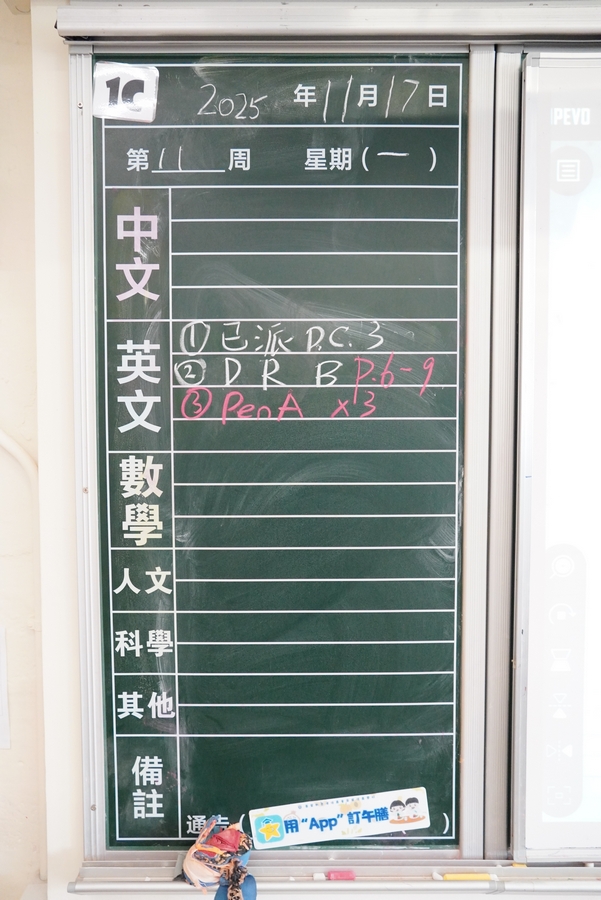 1C
2025 年 11 月 17 日
第 11 周 星期 ( 一 )
中文
英文
① 已派 D.C. 3
② D R B P.6-9
③ Pen A x3
數學
人文
科學
其他
備註
通告 ( )
用 "App" 訂午膳
PEVO